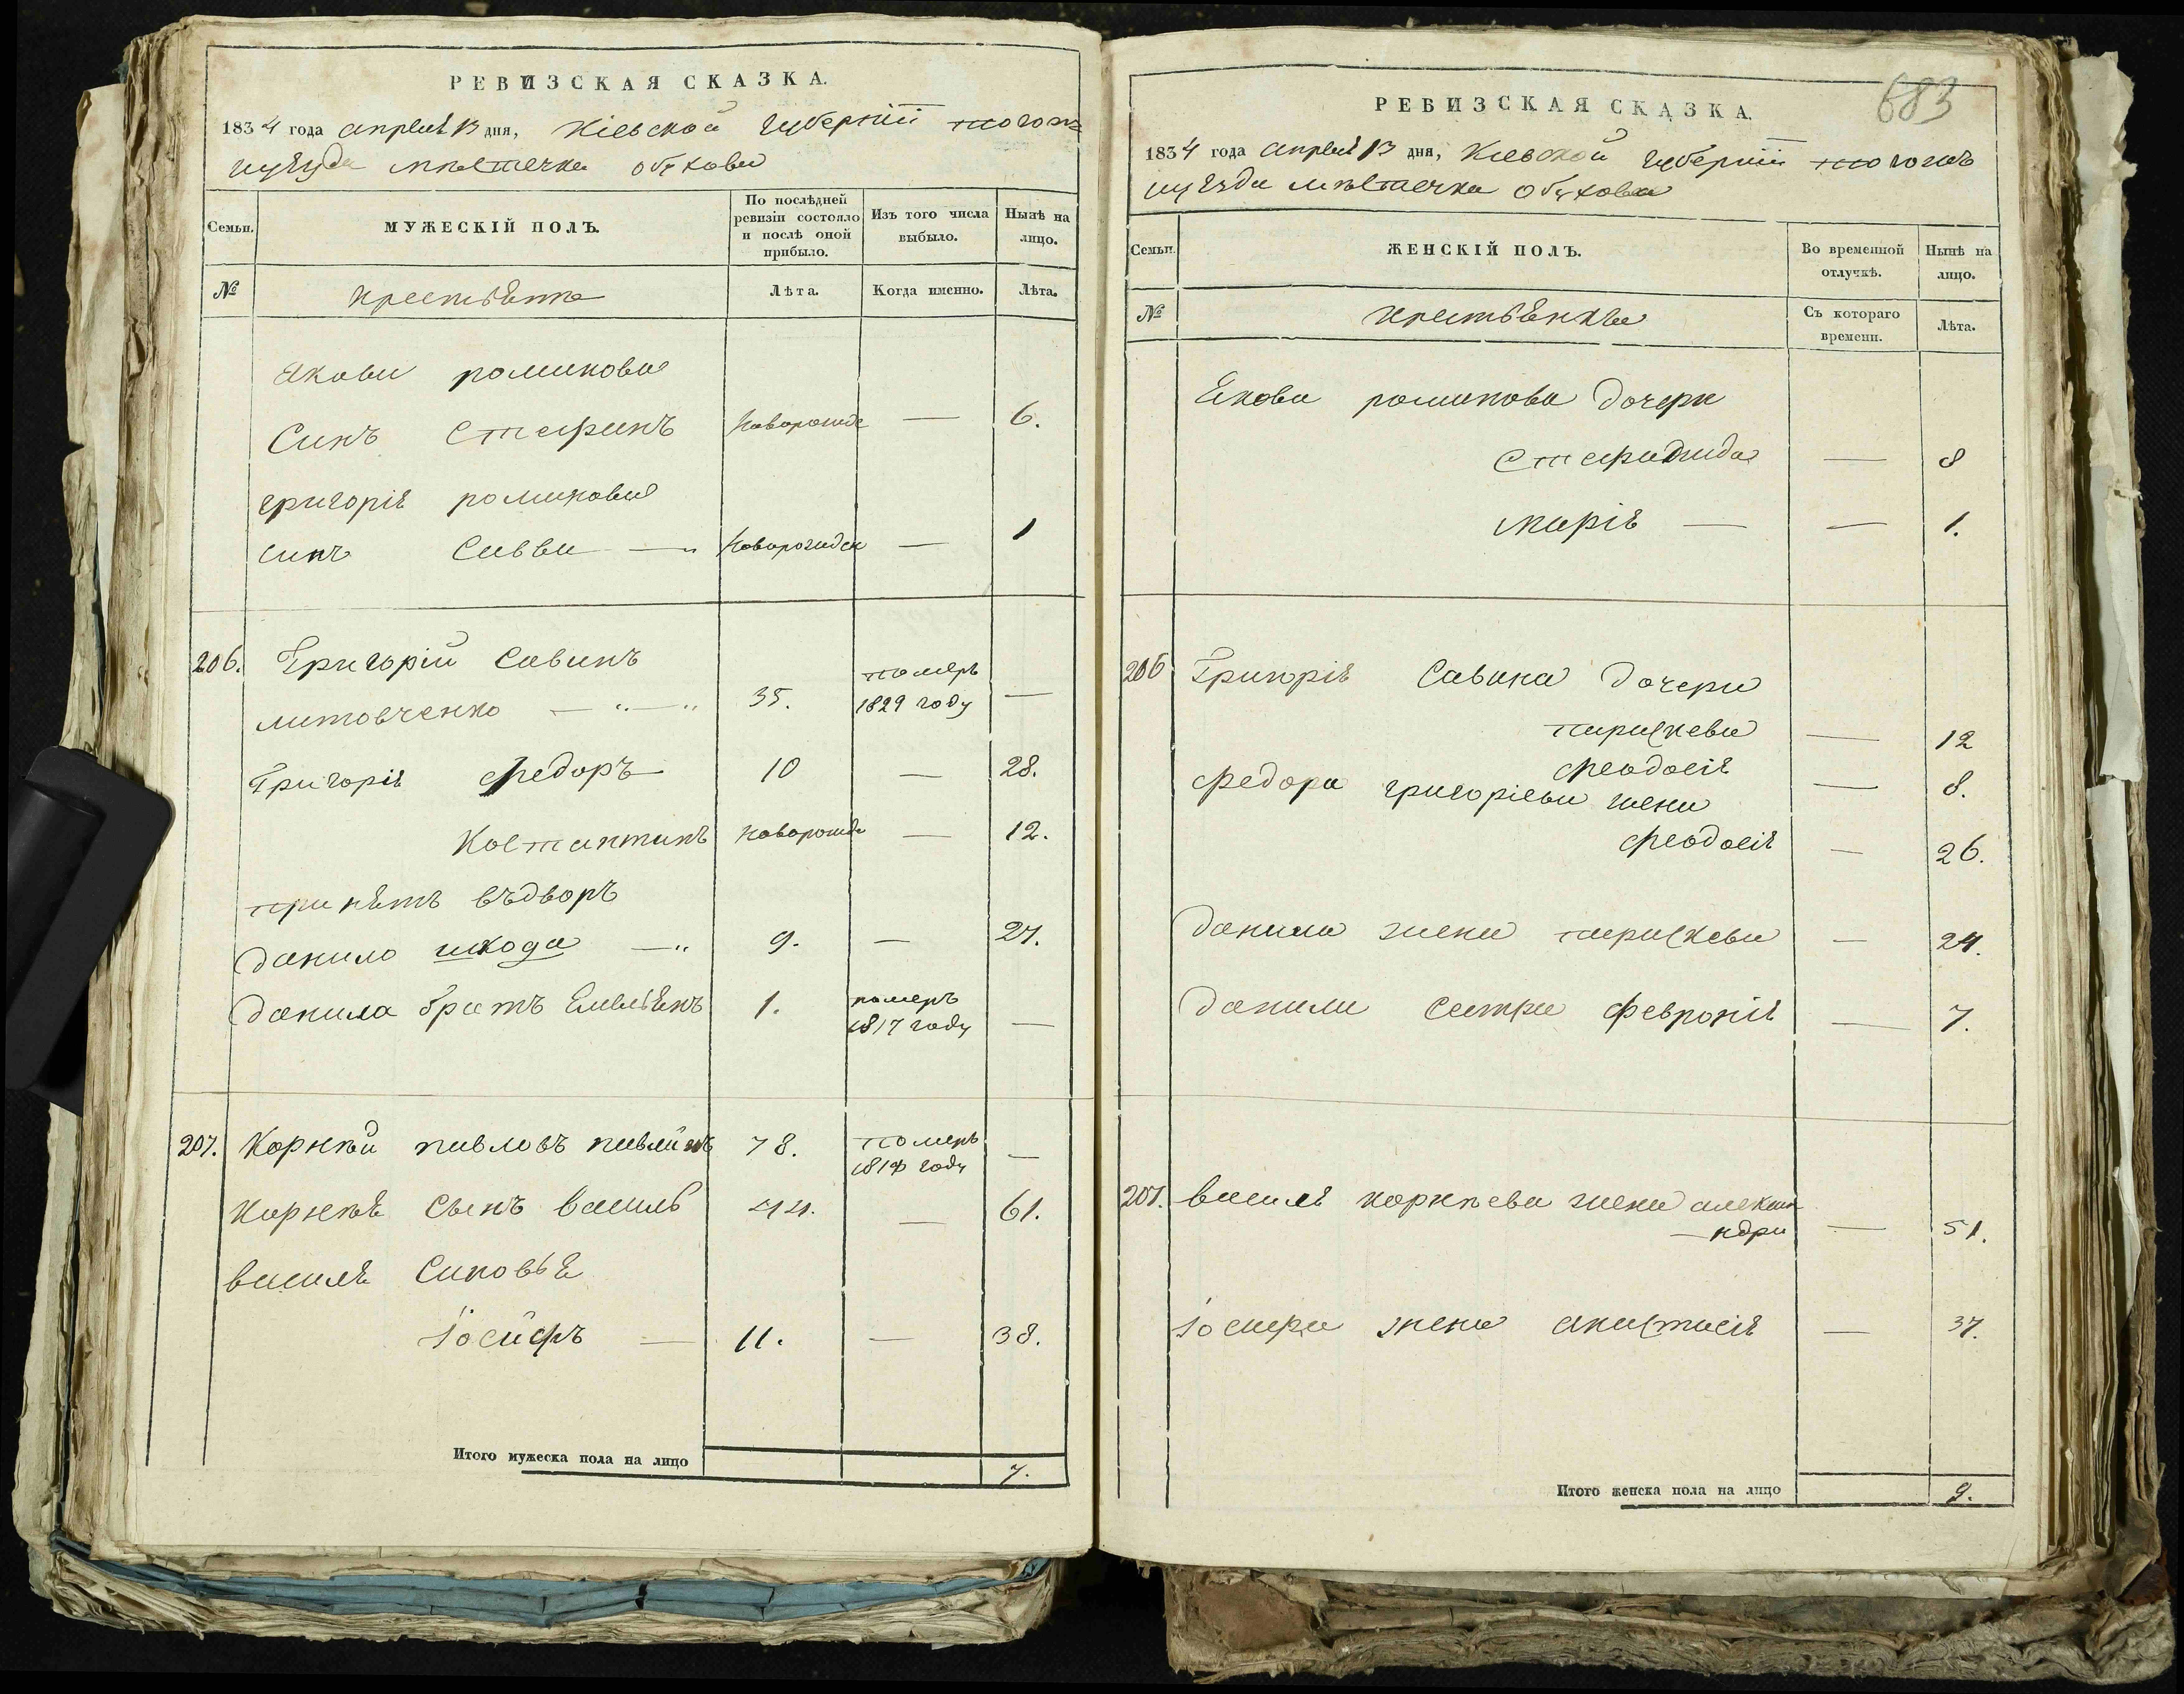 РЕВИЗСКАЯ СКАЗКА.
1834 года апреля 13 дня, Кіевской губерніи тогожъ
уѣзда мѣстечка обухова
Семьи.
МУЖЕСКІЙ ПОЛЪ.
По послѣдней ревизіи состояло и послѣ оной прибыло.
Изъ того числа выбыло.
Нынѣ на лицо.
№
крестьяне
Лѣта.
Когда именно.
Лѣта.
Якова романова
Синъ Стефанъ новорожде — 6.
григорія романова
синъ Савва — новорожден — 1
206. Григорій Савинъ
литовченко — 35. померъ 1829 году —
Григорія федоръ 10 — 28.
Костантинъ новорожде — 12.
принятъ въдворъ
данило шкода — 9. — 27.
данила братъ Емельянъ 1. померъ 1817 году —
207. Корнѣй павловъ 78. померъ —
Корнѣя сынъ василь 44. — 61.
василя Синовья
Іосифъ — 11. — 38.
Итого мужеска пола на лицо 7.
683
РЕВИЗСКАЯ СКАЗКА.
1834 года апреля 13 дня, Киевской губерніи тогожъ
уѣзда мѣстечка обухова
Семьи.
ЖЕНСКІЙ ПОЛЪ.
Во временной отлучкѣ.
Нынѣ на лицо.
№
крестьянки
Съ котораго времени.
Лѣта.
Якова романова дочери
— 8
марія — — 1.
206 Григорія Савина дочери
параскева — 12
феодосія — 8.
федора григоріева жена
феодосія — 26.
данила жена параскева — 24.
данила сестра февронія — 7.
207. василя корнѣева жена алексан
ндра — 51.
Іосифа жена анастасія — 37.
Итого женска пола на лицо 9.